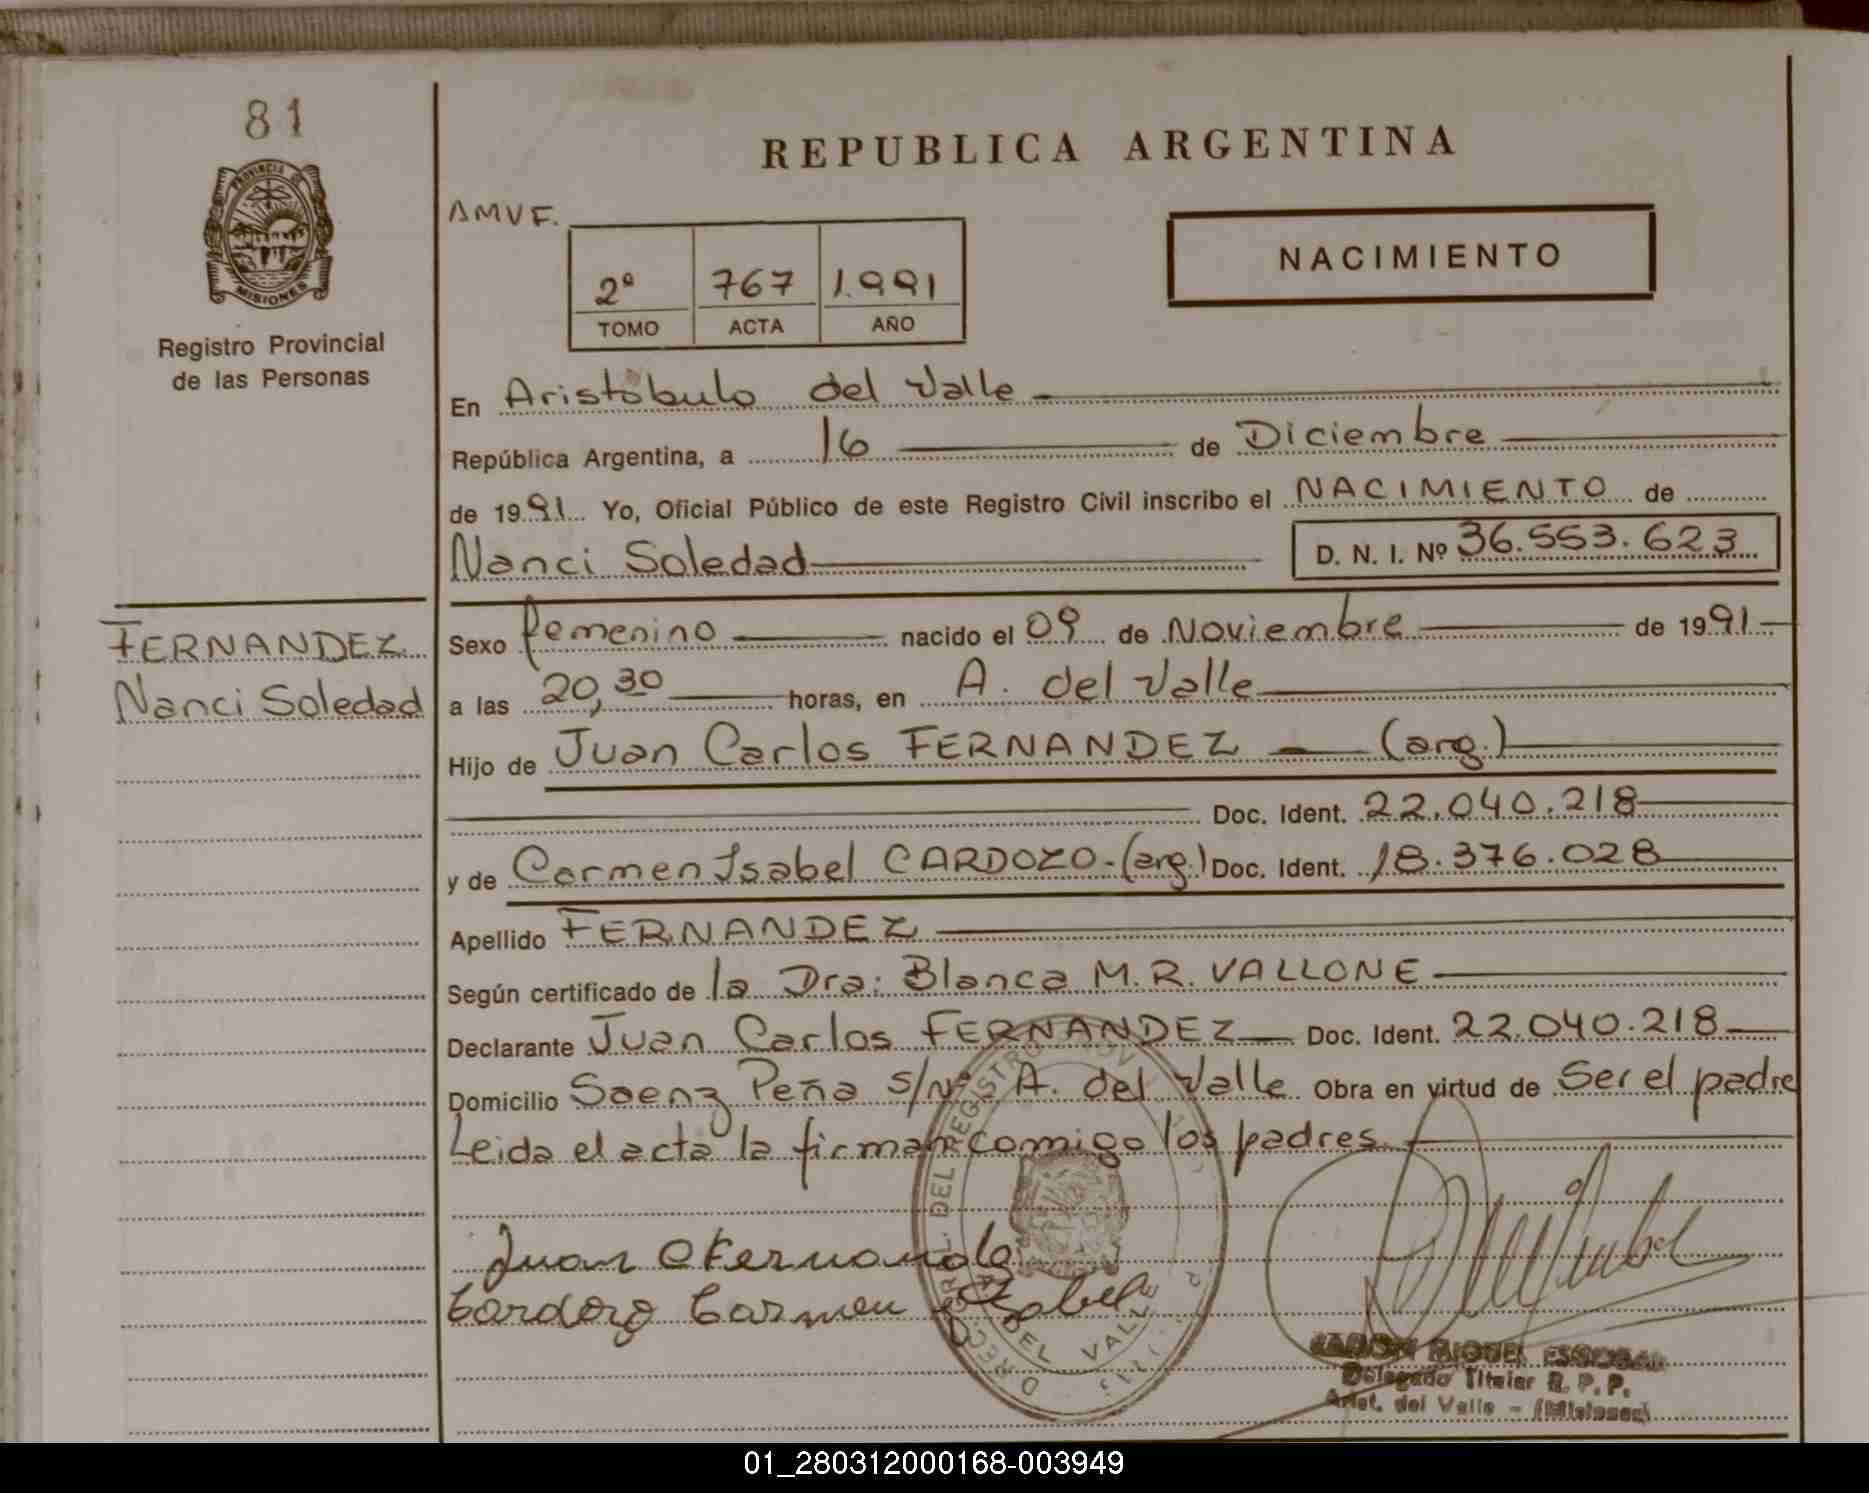 81
PROVINCIA
MISIONES
Registro Provincial
de las Personas
FERNANDEZ
Nanci Soledad
REPUBLICA ARGENTINA
AMVF.
2º 767 1.991
TOMO ACTA AÑO
NACIMIENTO
En Aristóbulo del Valle
República Argentina, a 16 de Diciembre
de 1991 Yo, Oficial Público de este Registro Civil inscribo el NACIMIENTO de
Nanci Soledad D. N. I. Nº 36.553.623
Sexo femenino nacido el 09 de Noviembre de 1991
a las 20,30 horas, en A. del Valle
Hijo de Juan Carlos FERNANDEZ (arg.)
Doc. Ident. 22.040.218
y de Carmen Isabel CARDOZO - (arg.) Doc. Ident. 18.376.028
Apellido FERNANDEZ
Según certificado de la Dra: Blanca M. R. VALLONE
Declarante Juan Carlos FERNANDEZ Doc. Ident. 22.040.218
Domicilio Saenz Peña s/Nº A. del Valle Obra en virtud de Ser el padre
Leida el acta la firman comigo los padres.
Juan C Fernande
Cardozo Carmen Isabel
DEL REGISTRO
DEL VALLE
Delegado Titular R. P. P.
Arist. del Valle - (Misiones)
01_280312000168-003949